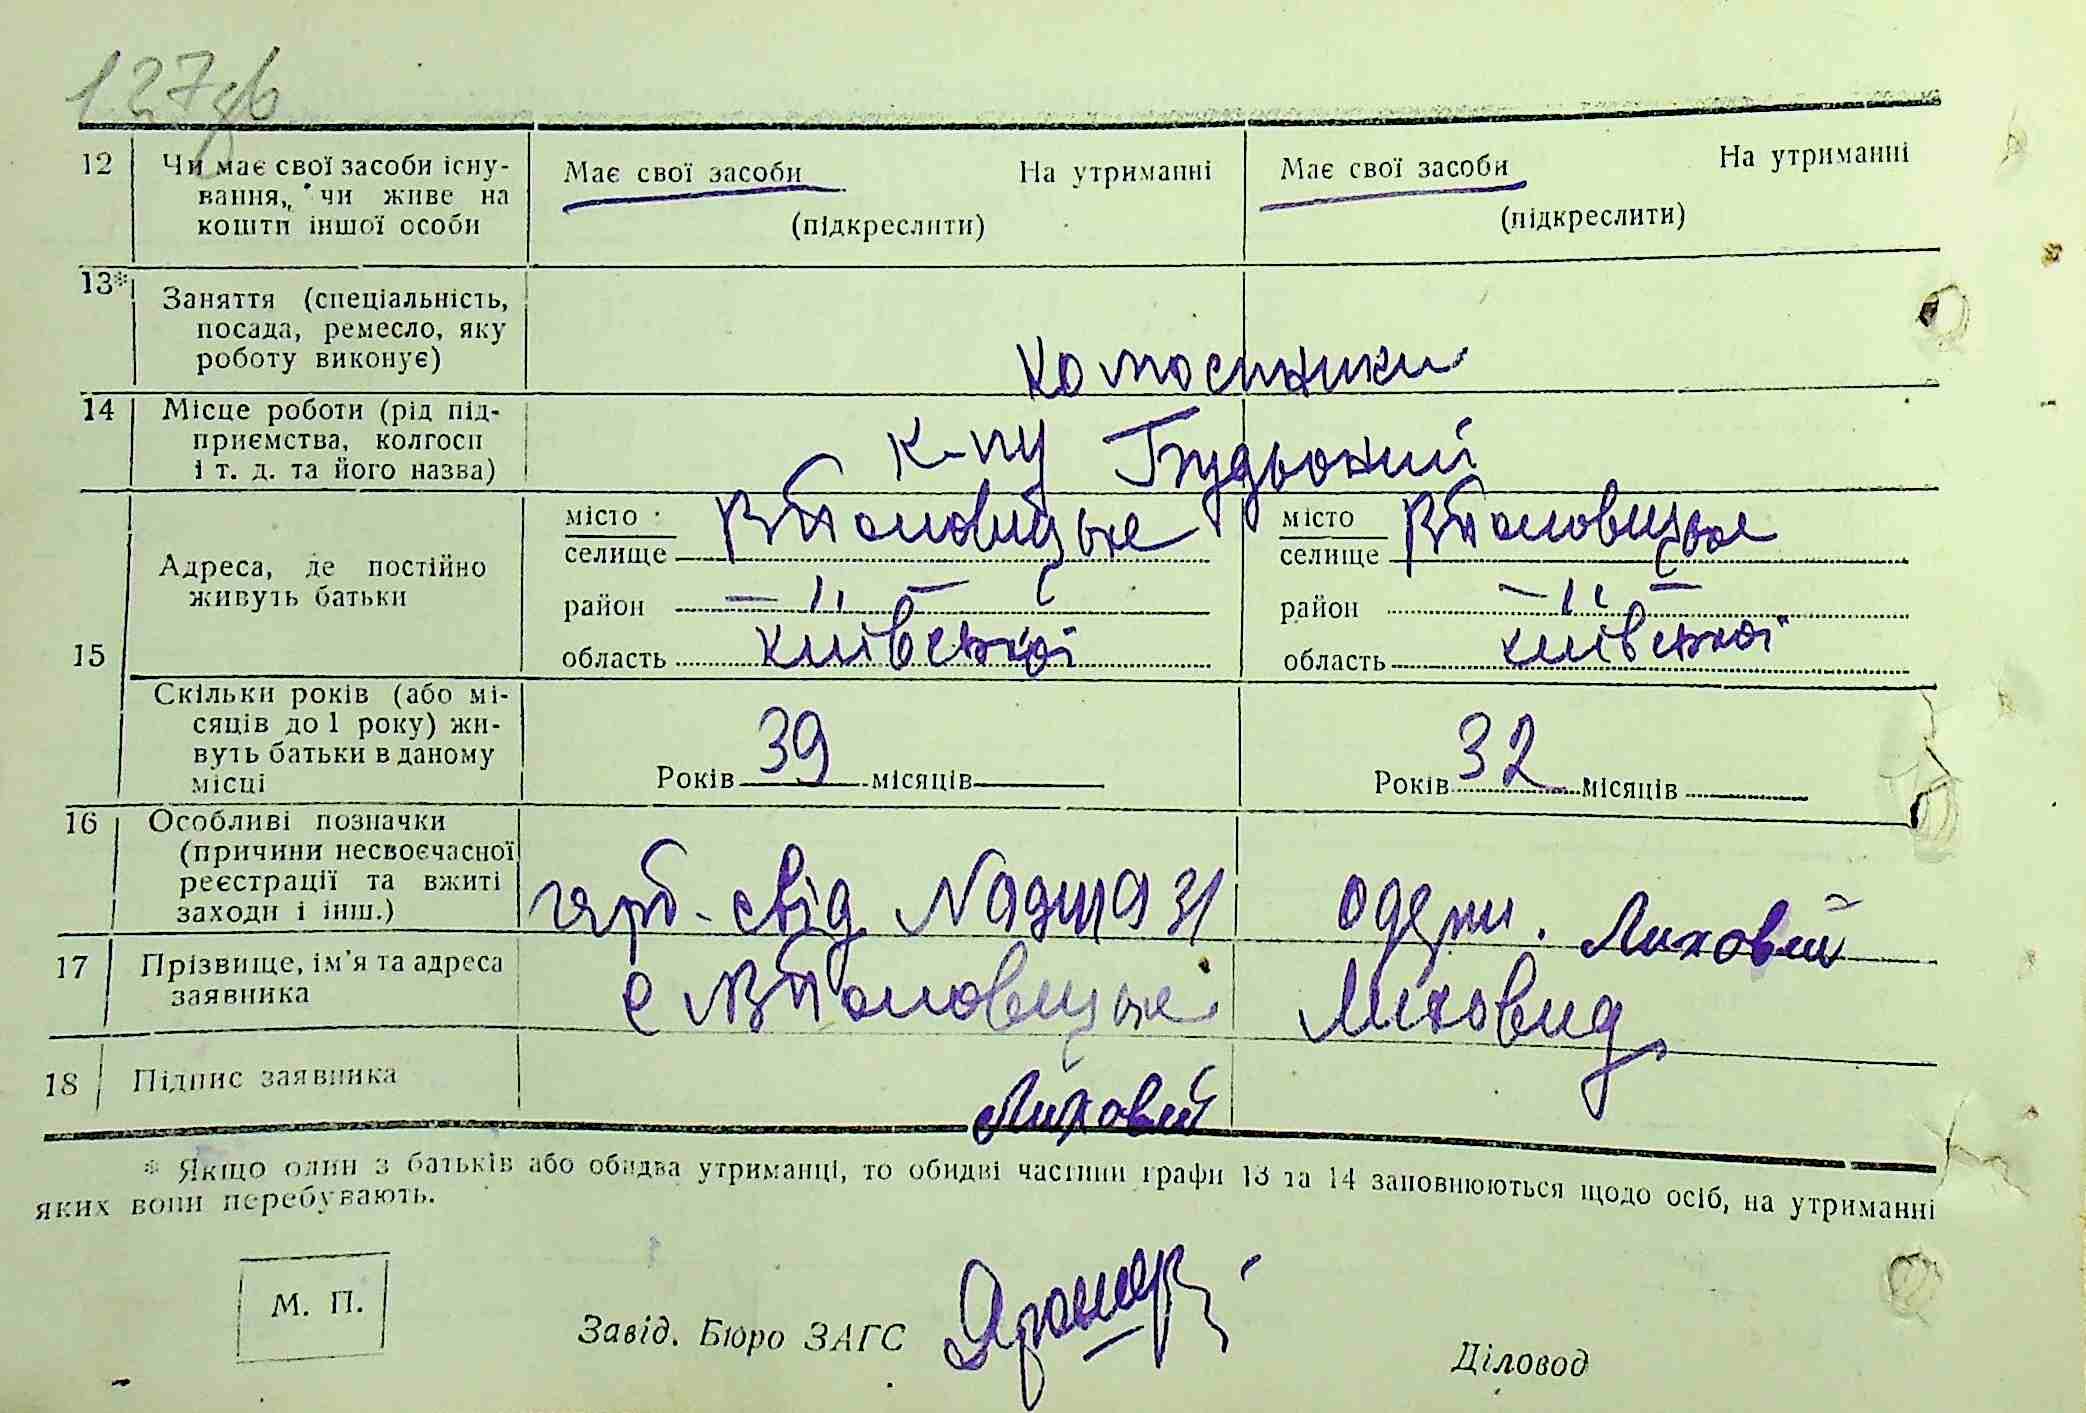 127зв
12 Чи має свої засоби існу-
вання, чи живе на
кошти іншої особи
Має свої засоби На утриманні
(підкреслити)
Має свої засоби На утриманні
(підкреслити)
13* Заняття (спеціальність,
посада, ремесло, яку
роботу виконує)
14 Місце роботи (рід під-
приємства, колгосп
і т. д. та його назва)
Будьоний
15 Адреса, де постійно
живуть батьки
місто
селище
район — " —
область київської
місто
селище
район — " —
область київської
Скільки років (або мі-
сяців до 1 року) жи-
вуть батьки в даному
місці
Років 39 місяців
Років 32 місяців
16 Особливі позначки
(причини несвоєчасної
реєстрації та вжиті
заходи і інш.)
свід одерж. Лиховий
17 Прізвище, ім'я та адреса
заявника
с
18 Підпис заявника
Лиховий
* Якщо один з батьків або обидва утриманці, то обидві частини графи 13 та 14 заповнюються щодо осіб, на утриманні
яких вони перебувають.
М. П.
Завід. Бюро ЗАГС
Діловод